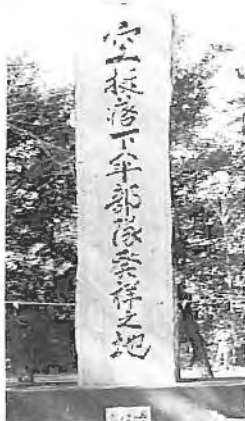 空挺落下傘部隊発祥之地